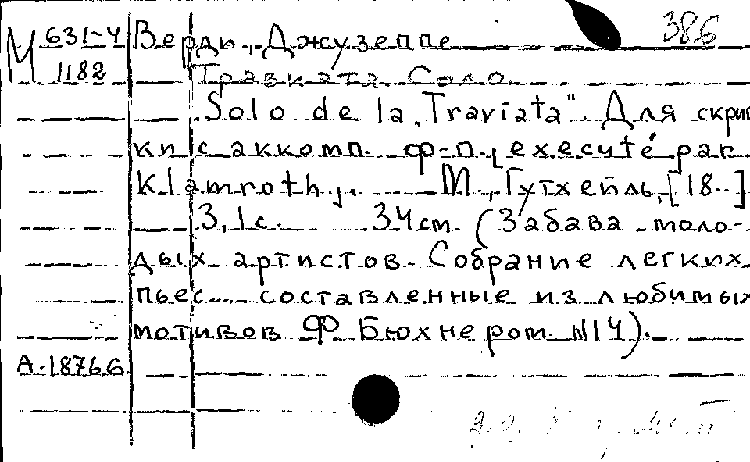 386
М 631-4
1182
Верди, Джузеппе
Травиата. Соло.
Solo de la „Traviata". Для скрип
ки с аккомп. ф-п., executé par
Klamroth, М., Гутхейль, [18..]
3,1с. 34см. (Забава моло-
дых артистов. Собрание легких
пьес составленные из любимых
мотивов Ф. Бюхнером. N14).
А-18766